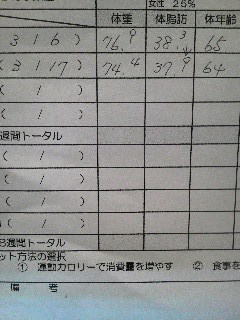 女性 25%
体重 体脂肪 体年齢
3 1 6 ) 76.9 38.3 65
( 3 / 17 ) 74.4 37.9 64
( / )
( / )
週間トータル
( / )
( / )
( / )
( / )
3週間トータル
ット方法の選択
① 運動カロリーで消費量を増やす ② 食事を
備 考